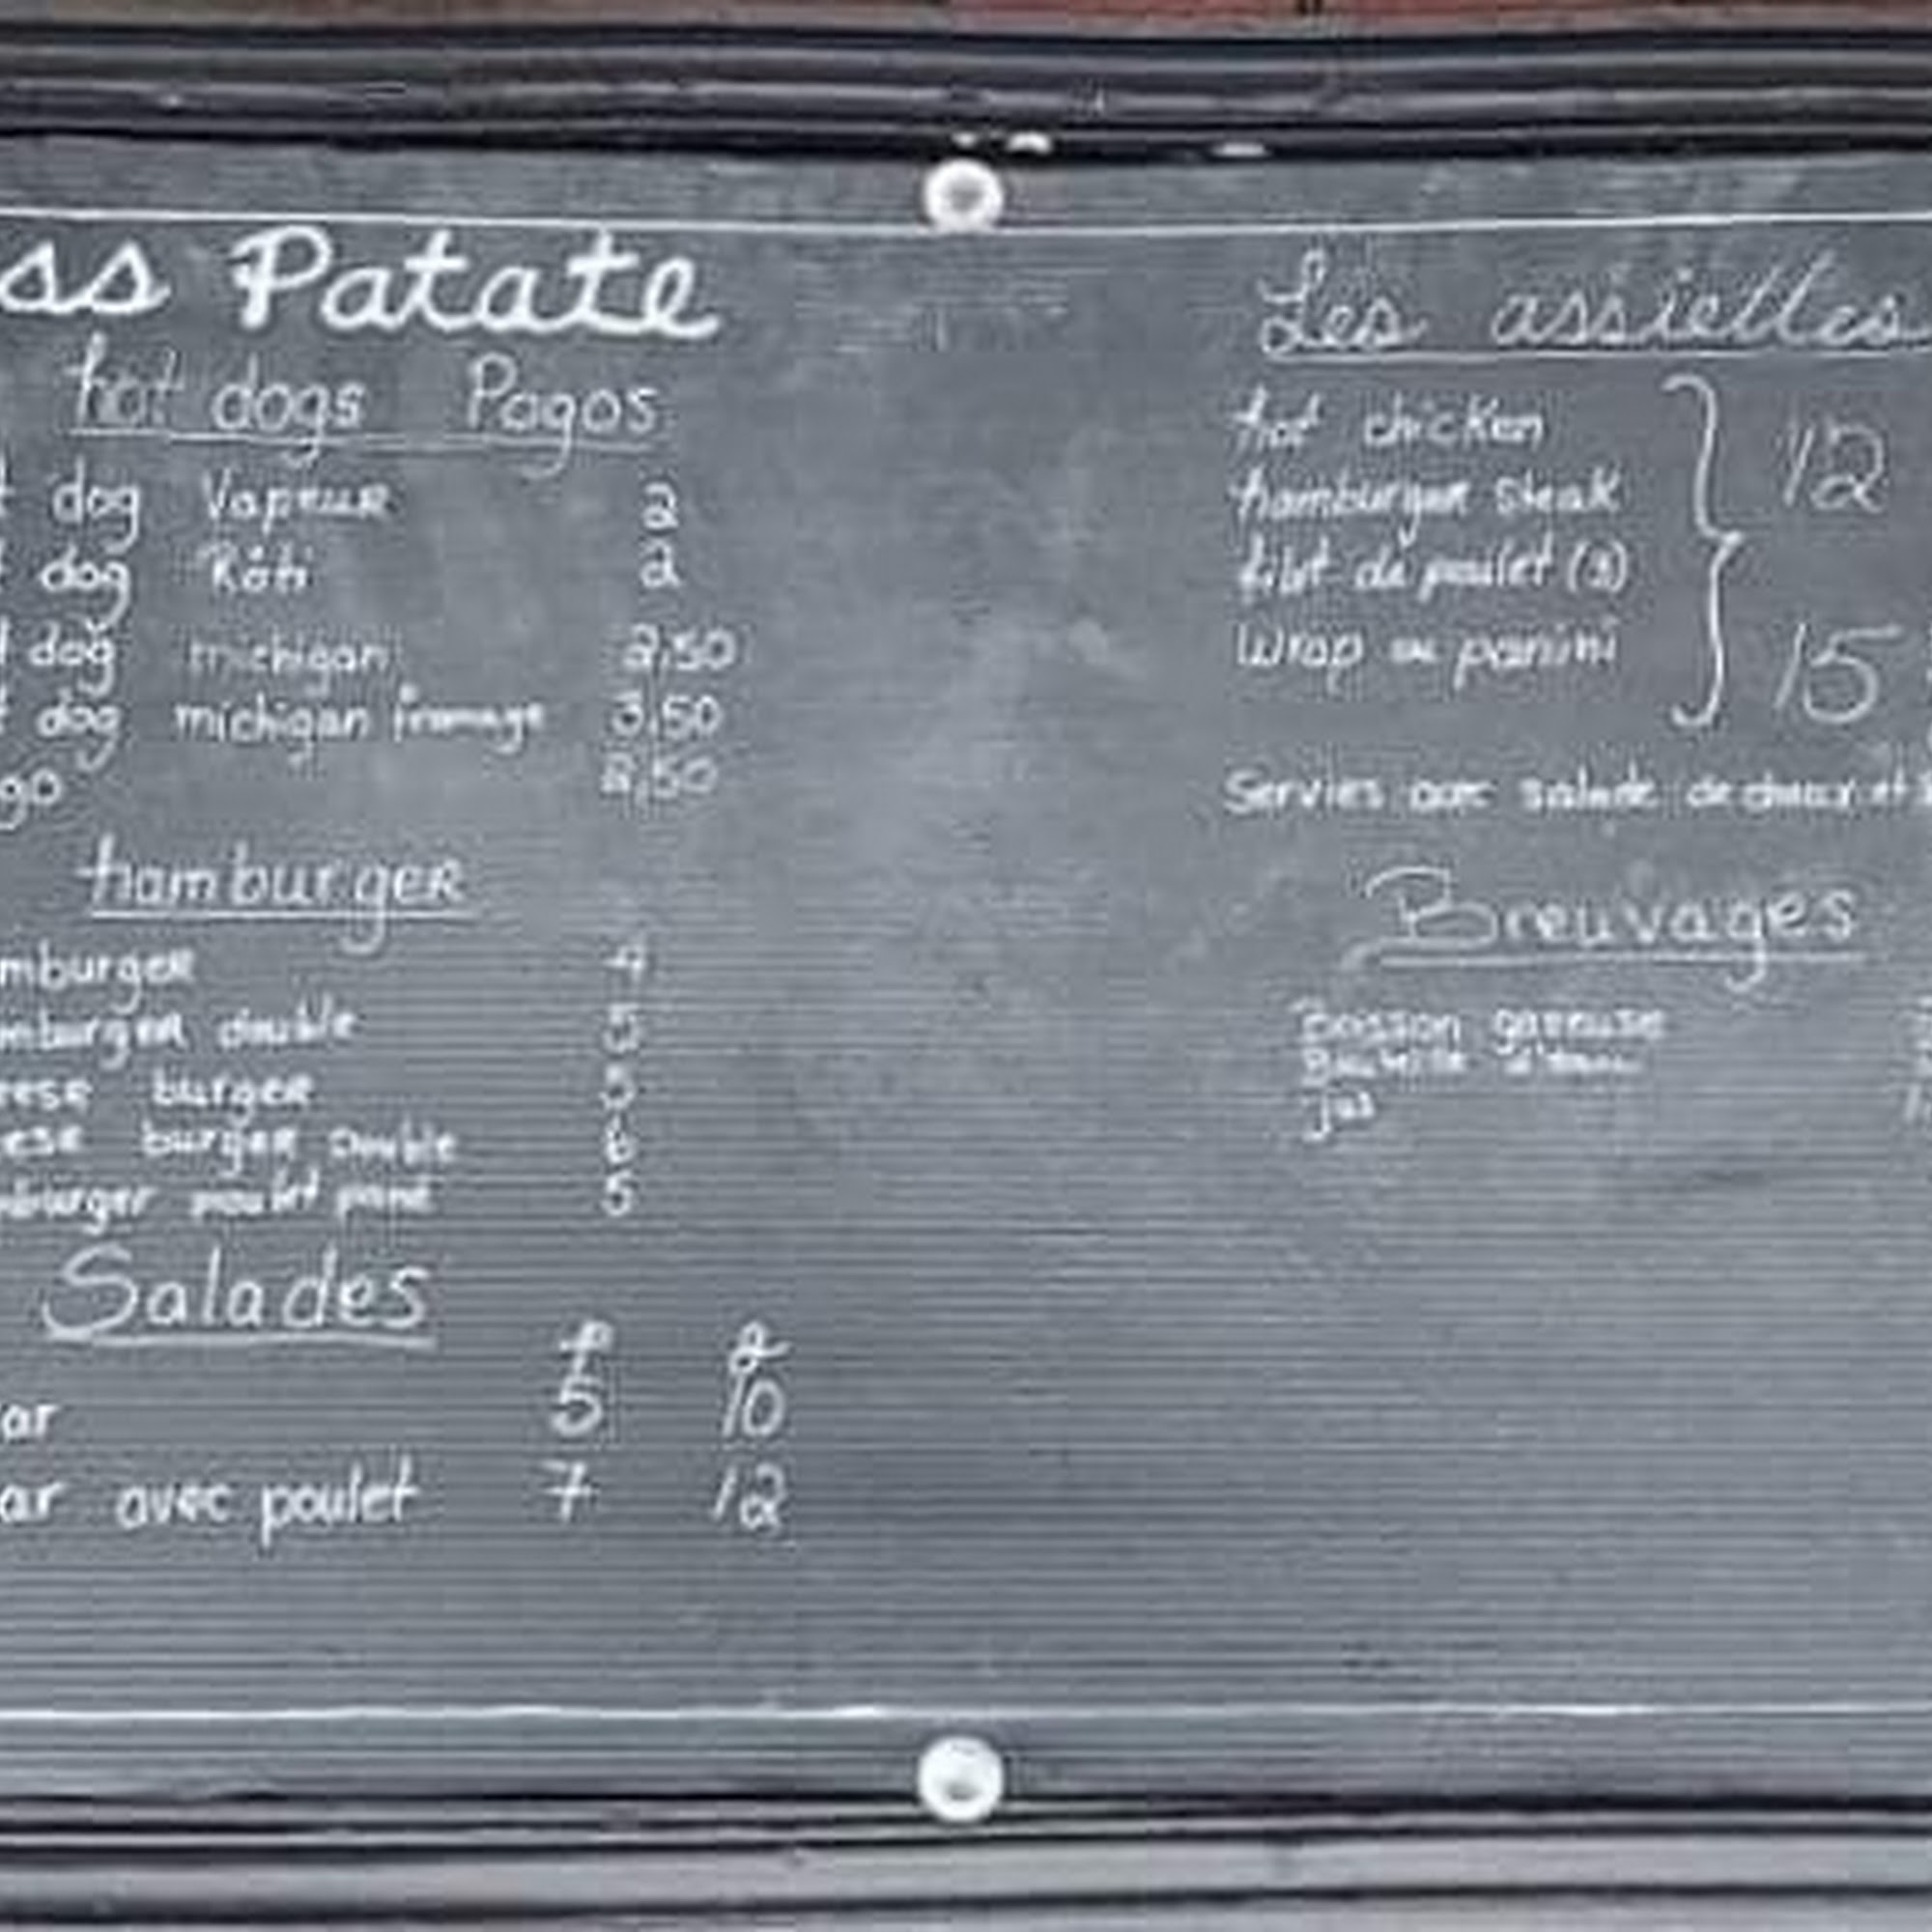 ss Patate
hot dogs Pogos
t dog Vapeur 2
t dog Rôti 2
t dog michigan 2,50
t dog michigan fromage 3,50
go 2,50
hamburger
mburger 4
mburger double 5
eese burger 5
ese burger Double 6
mburger poulet pané 5
Salades
p g
ar 5 10
ar avec poulet 7 12
Les assiettes
hot chicken
hamburger steak 12
filet de poulet (3)
Wrap ou panini 15
Servies avec salade de choux et
Breuvages
Boisson gazeuse
Bouteille d'eau
Jus 1